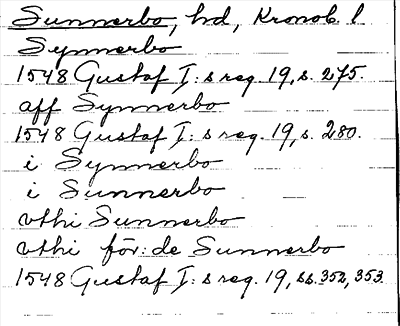 Sunnerbo, hd, Kronob. l
Synnerbo
1548 Gustaf I:s reg. 19, s. 275.
aff Synnerbo
1548 Gustaf I:s reg. 19, s. 280.
i Synnerbo
i Sunnerbo
vthi Sunnerbo
vthi för:de Sunnerbo
1548 Gustaf I:s reg. 19, ss. 352, 353